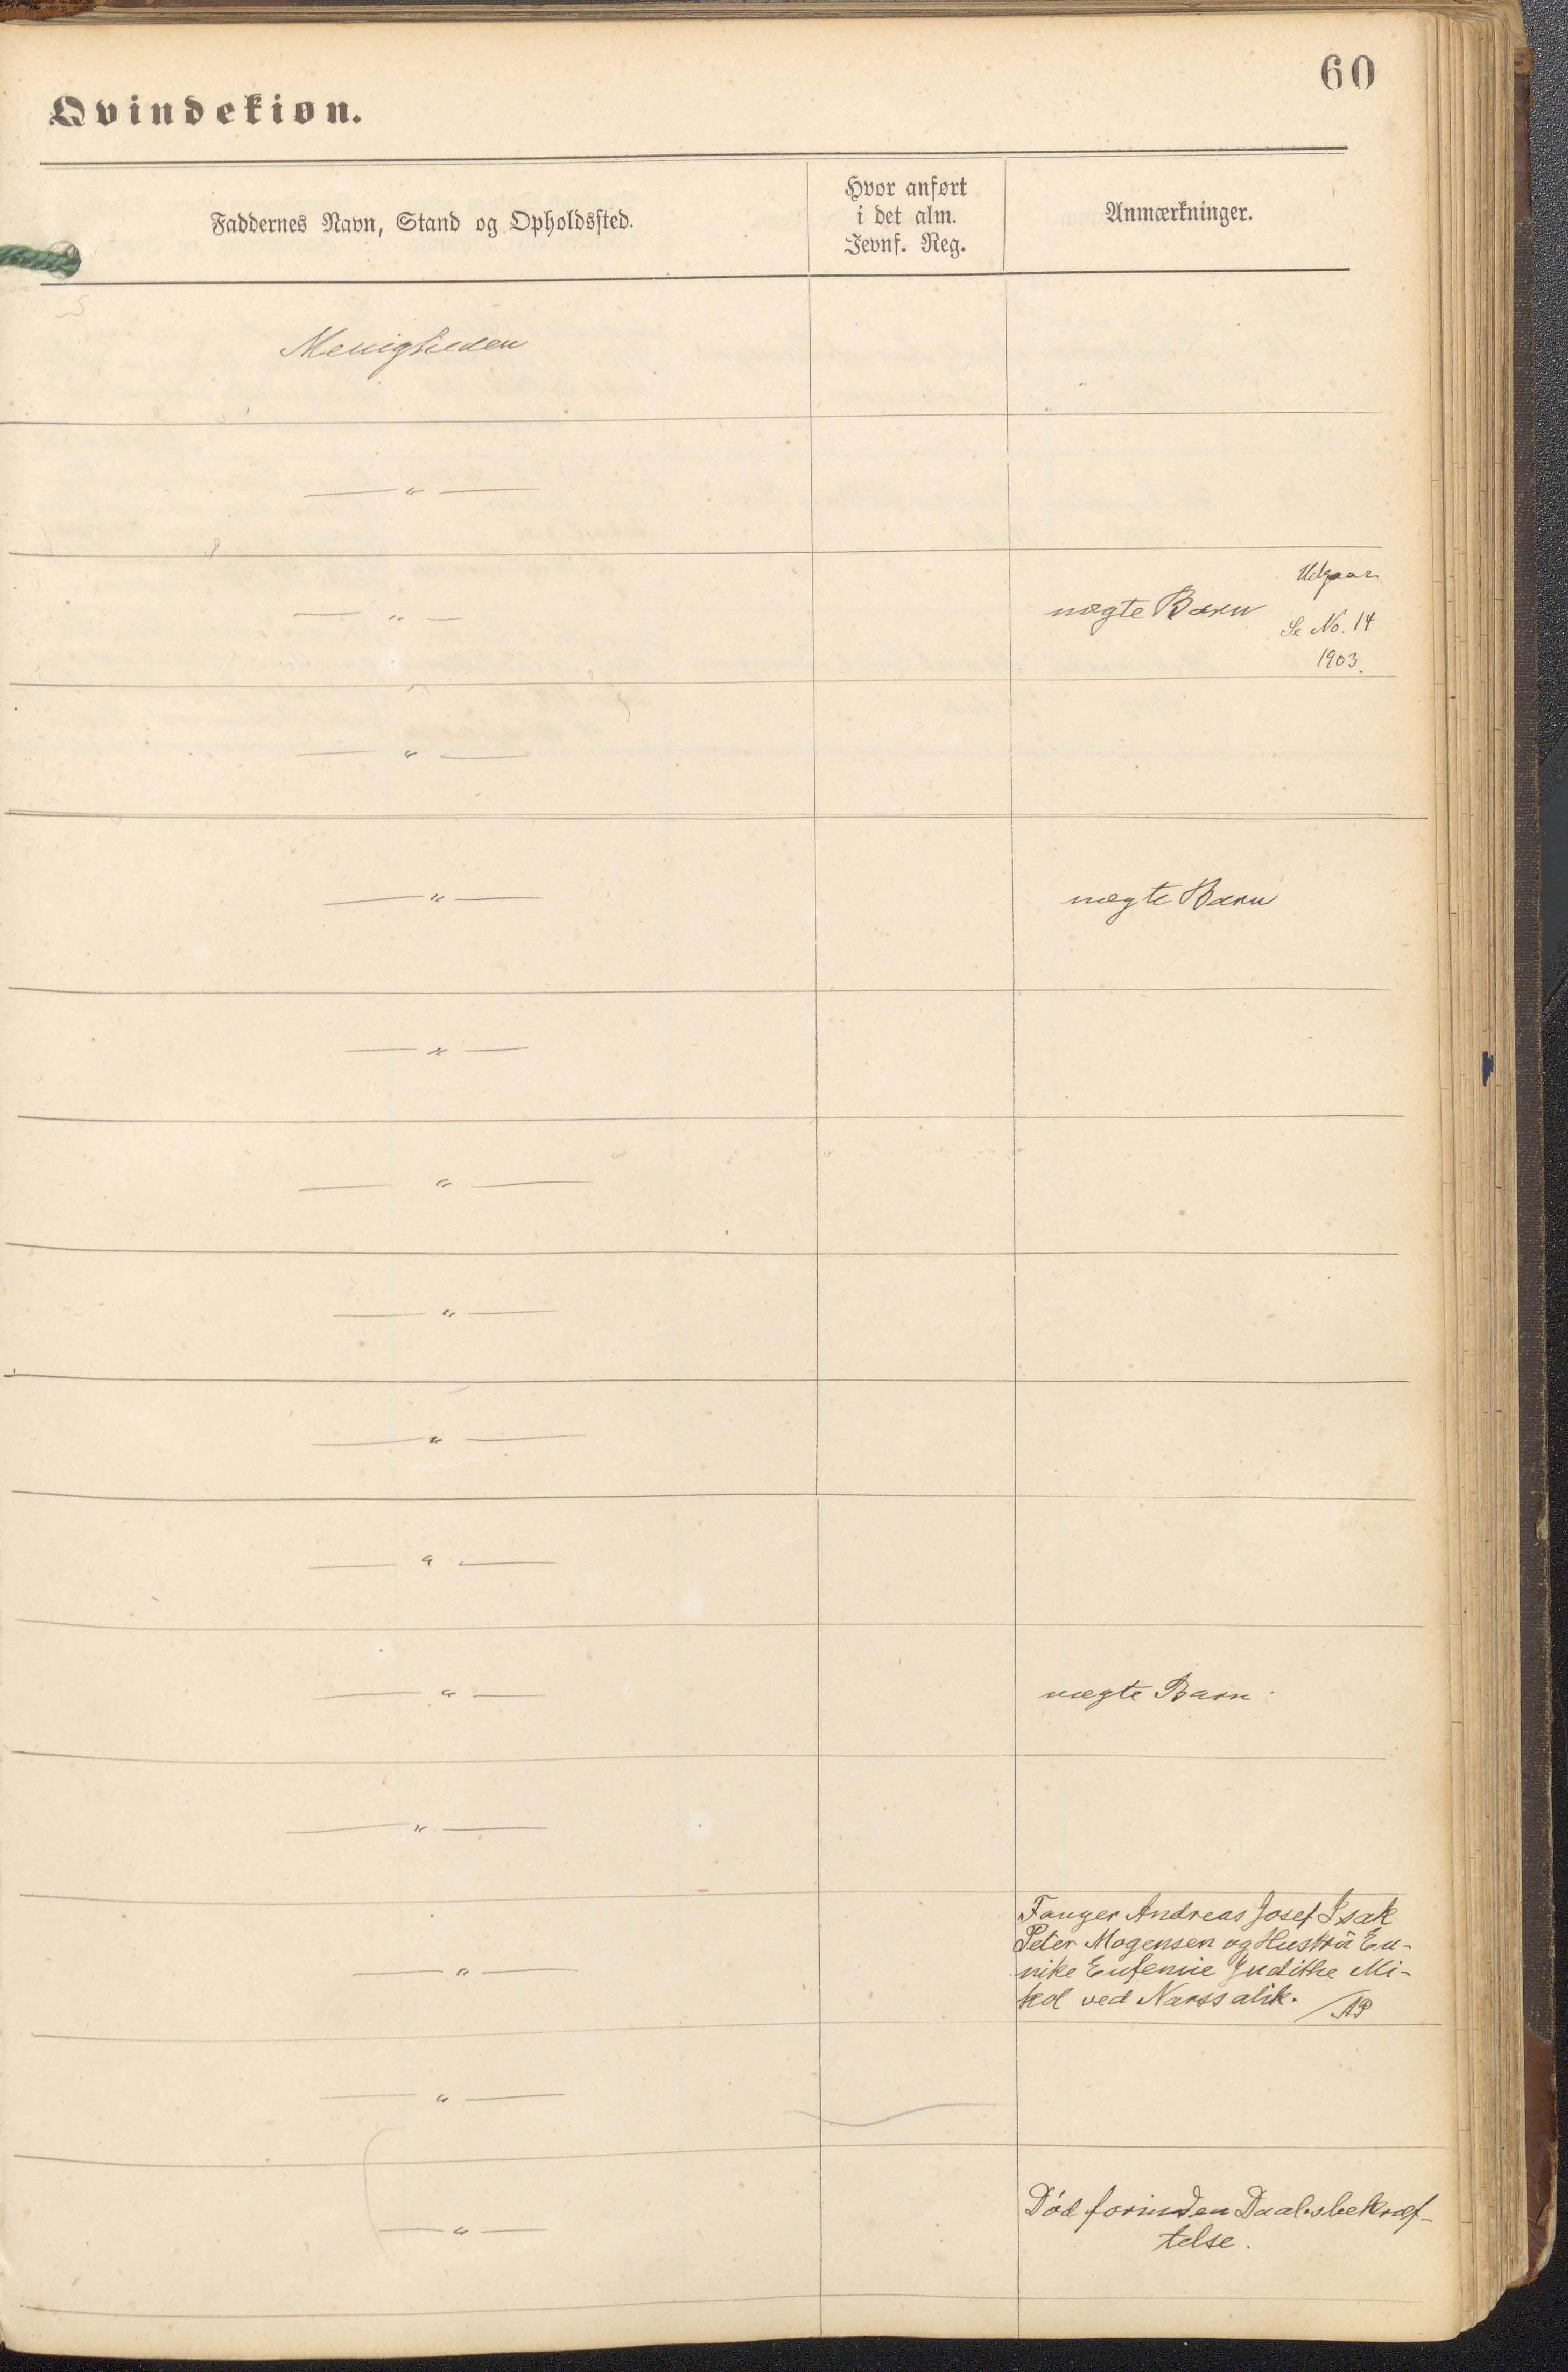 60
Qvindekiøn.
Faddernes Navn, Stand og Opholdssted.
Hvor anført
i det alm.
Jevnf. Reg.
Anmærkninger.
Menigheden
— " —
Udgaar
— " —
uægte Barn
Se No. 14
1903.
— " —
— " —
uægte Barn
— " —
— " —
— " —
— " —
— " —
— " —
uægte Barn
— " —
Fanger Andreas Josef Isak
Peter Mogensen og Hustru Eu-
nike Eufemie Judithe Mi-
kol ved Narssalik.
/AP
— " —
— " —
Död forinden Daabsbekræf-
telse.
— " —